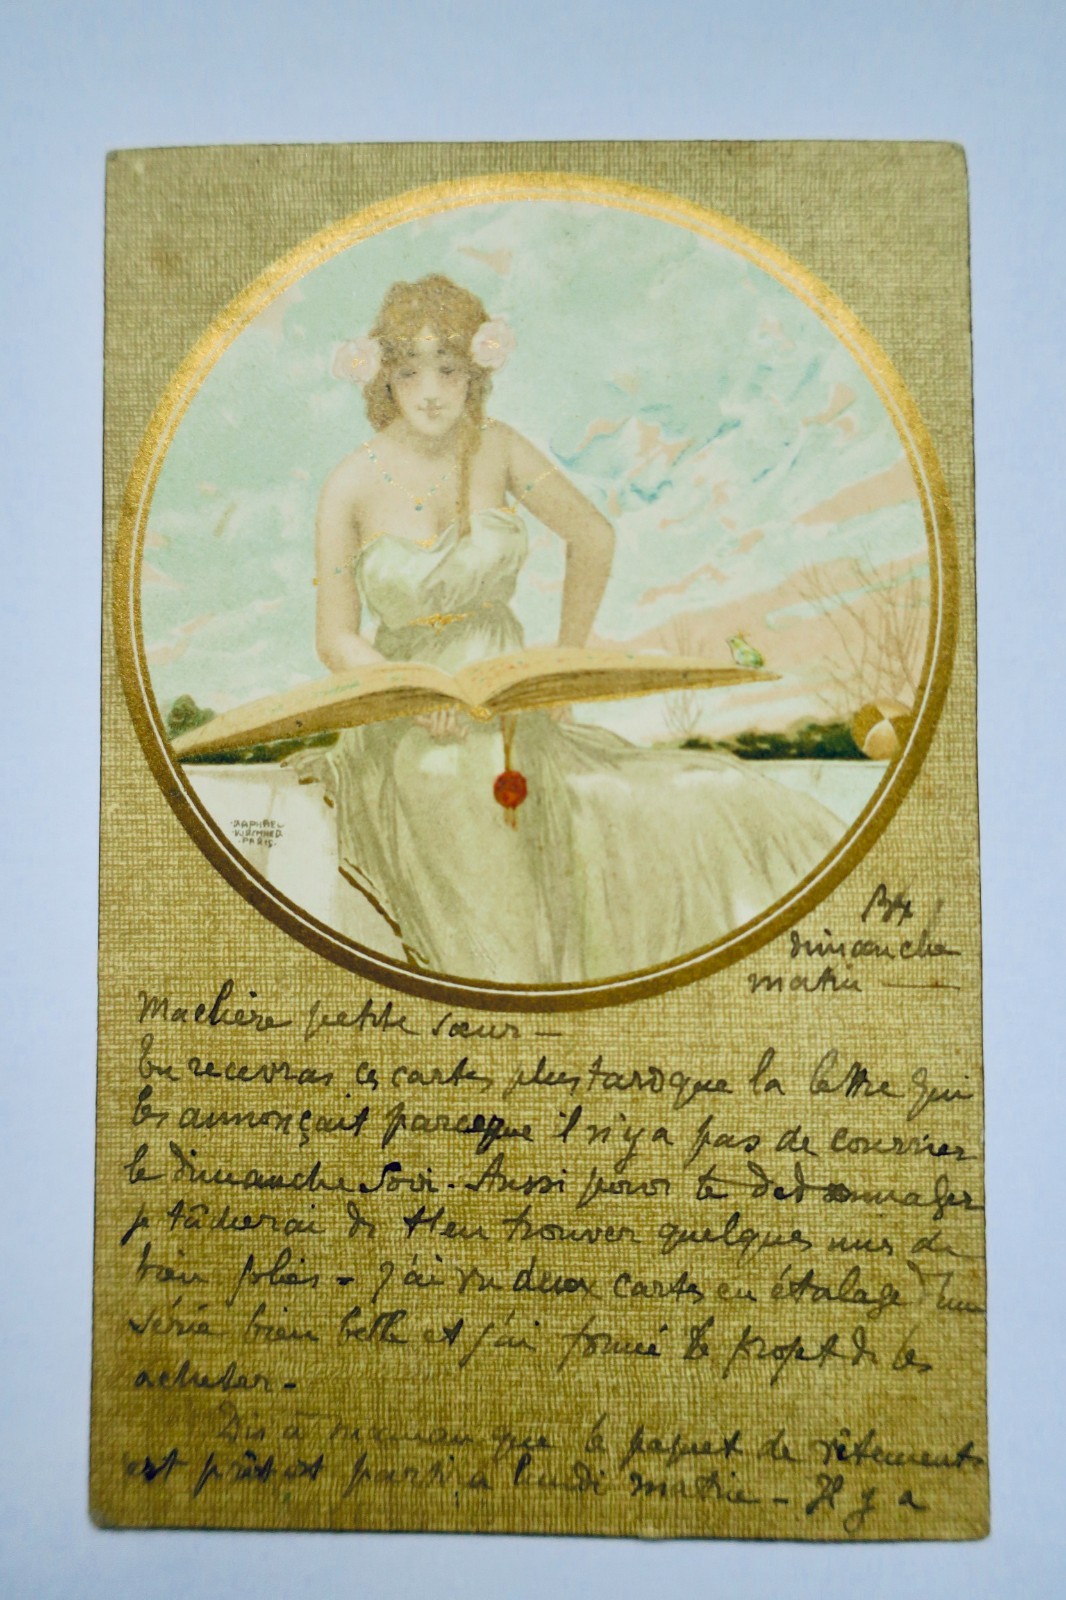 RAPHAEL
KIRCHNER
PARIS.
Bx
dimanche
matin —
Ma chère petite sœur —
Tu recevras ces cartes plus tard que la lettre qui
les annonçait parceque il n'y a pas de courrier
le dimanche soir. Aussi pour te dédommager
je tâcherai de t'en trouver quelques unes de
bien jolies - J'ai vu deux cartes en étalage d'une
série bien belle et j'ai formé le projet de les
acheter -
Dis à maman que le paquet de vêtements
est prêt et partira lundi matin - Il y a